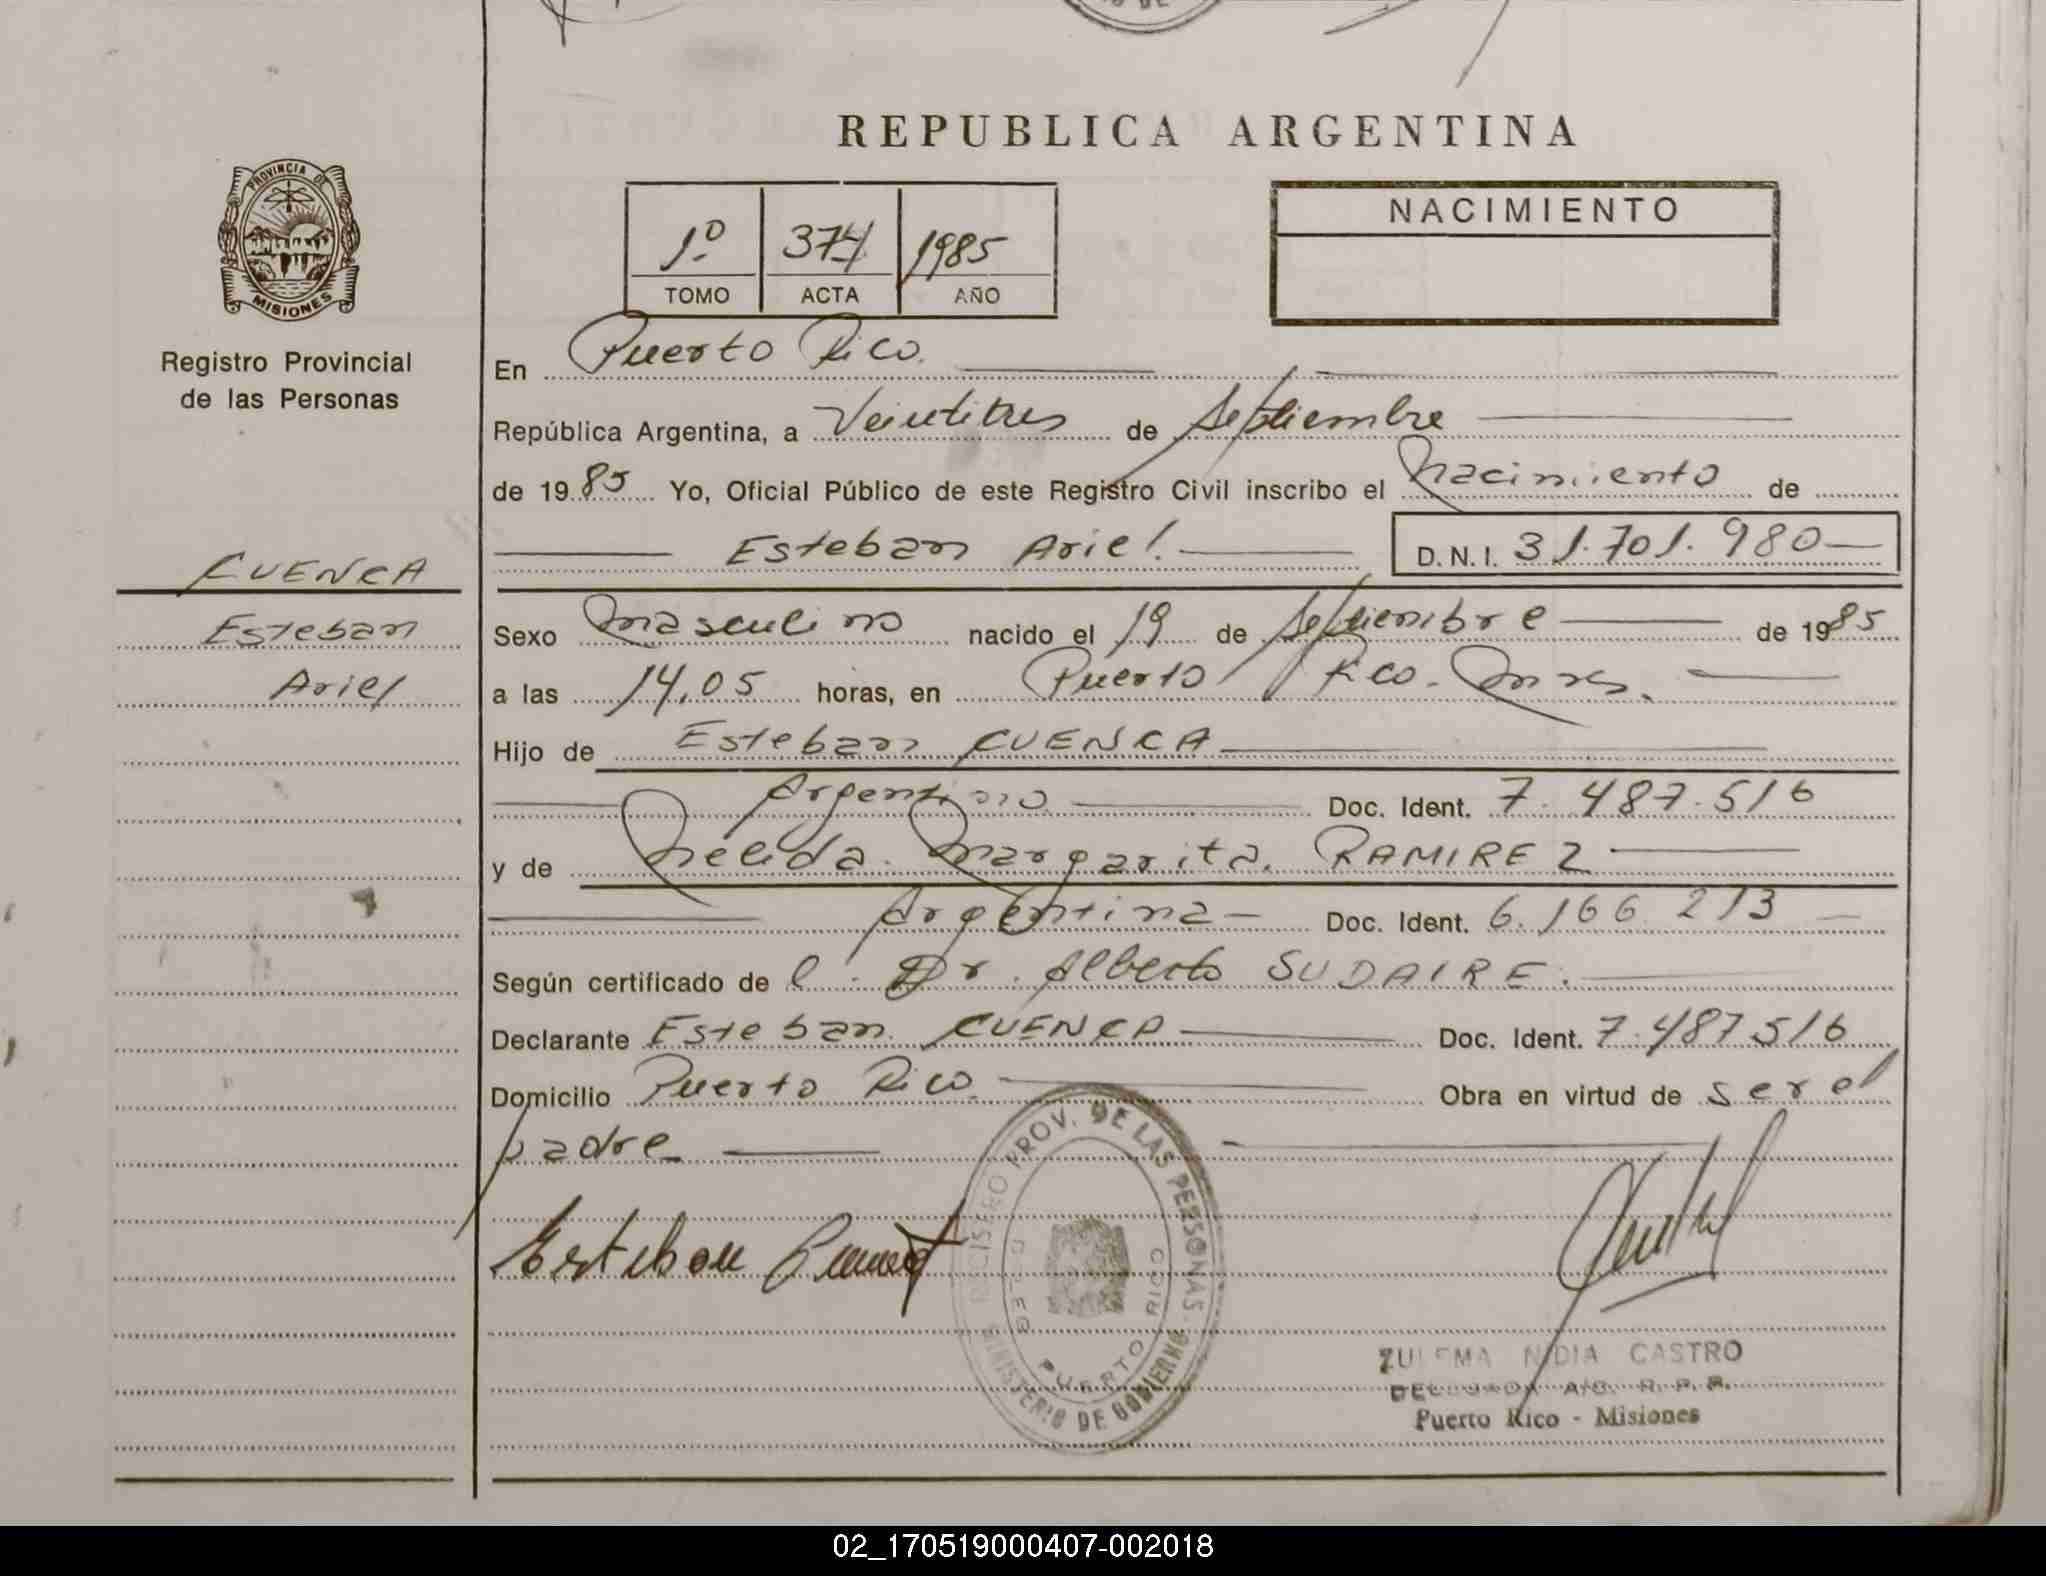 REPUBLICA ARGENTINA
PROVINCIA DE
MISIONES
Registro Provincial
de las Personas
1º 374 1985
TOMO ACTA AÑO
NACIMIENTO
En Puerto Rico.
República Argentina, a Veintitres de Septiembre
de 1985 Yo, Oficial Público de este Registro Civil inscribo el Nacimiento de
Esteban Ariel. D.N.I. 31.701.980
CUENCA
Esteban
Ariel
Sexo masculino nacido el 19 de Septiembre de 1985
a las 14,05 horas, en Puerto Rico. Mnes.
Hijo de Esteban CUENCA
Argentino Doc. Ident. 7.487.516
y de Nelida Margarita RAMIREZ
Argentina Doc. Ident. 6.166.213
Según certificado de l Dr. Alberto SUDAIRE.
Declarante Esteban CUENCA Doc. Ident. 7.487.516
Domicilio Puerto Rico. Obra en virtud de ser el
padre
Esteban
REGISTRO PROV. DE LAS PERSONAS.
MINISTERIO DE GOBIERNO
PUERTO RICO
ZULEMA NIDIA CASTRO
DELEGADA A/C. R. P. P.
Puerto Rico - Misiones
02_170519000407-002018